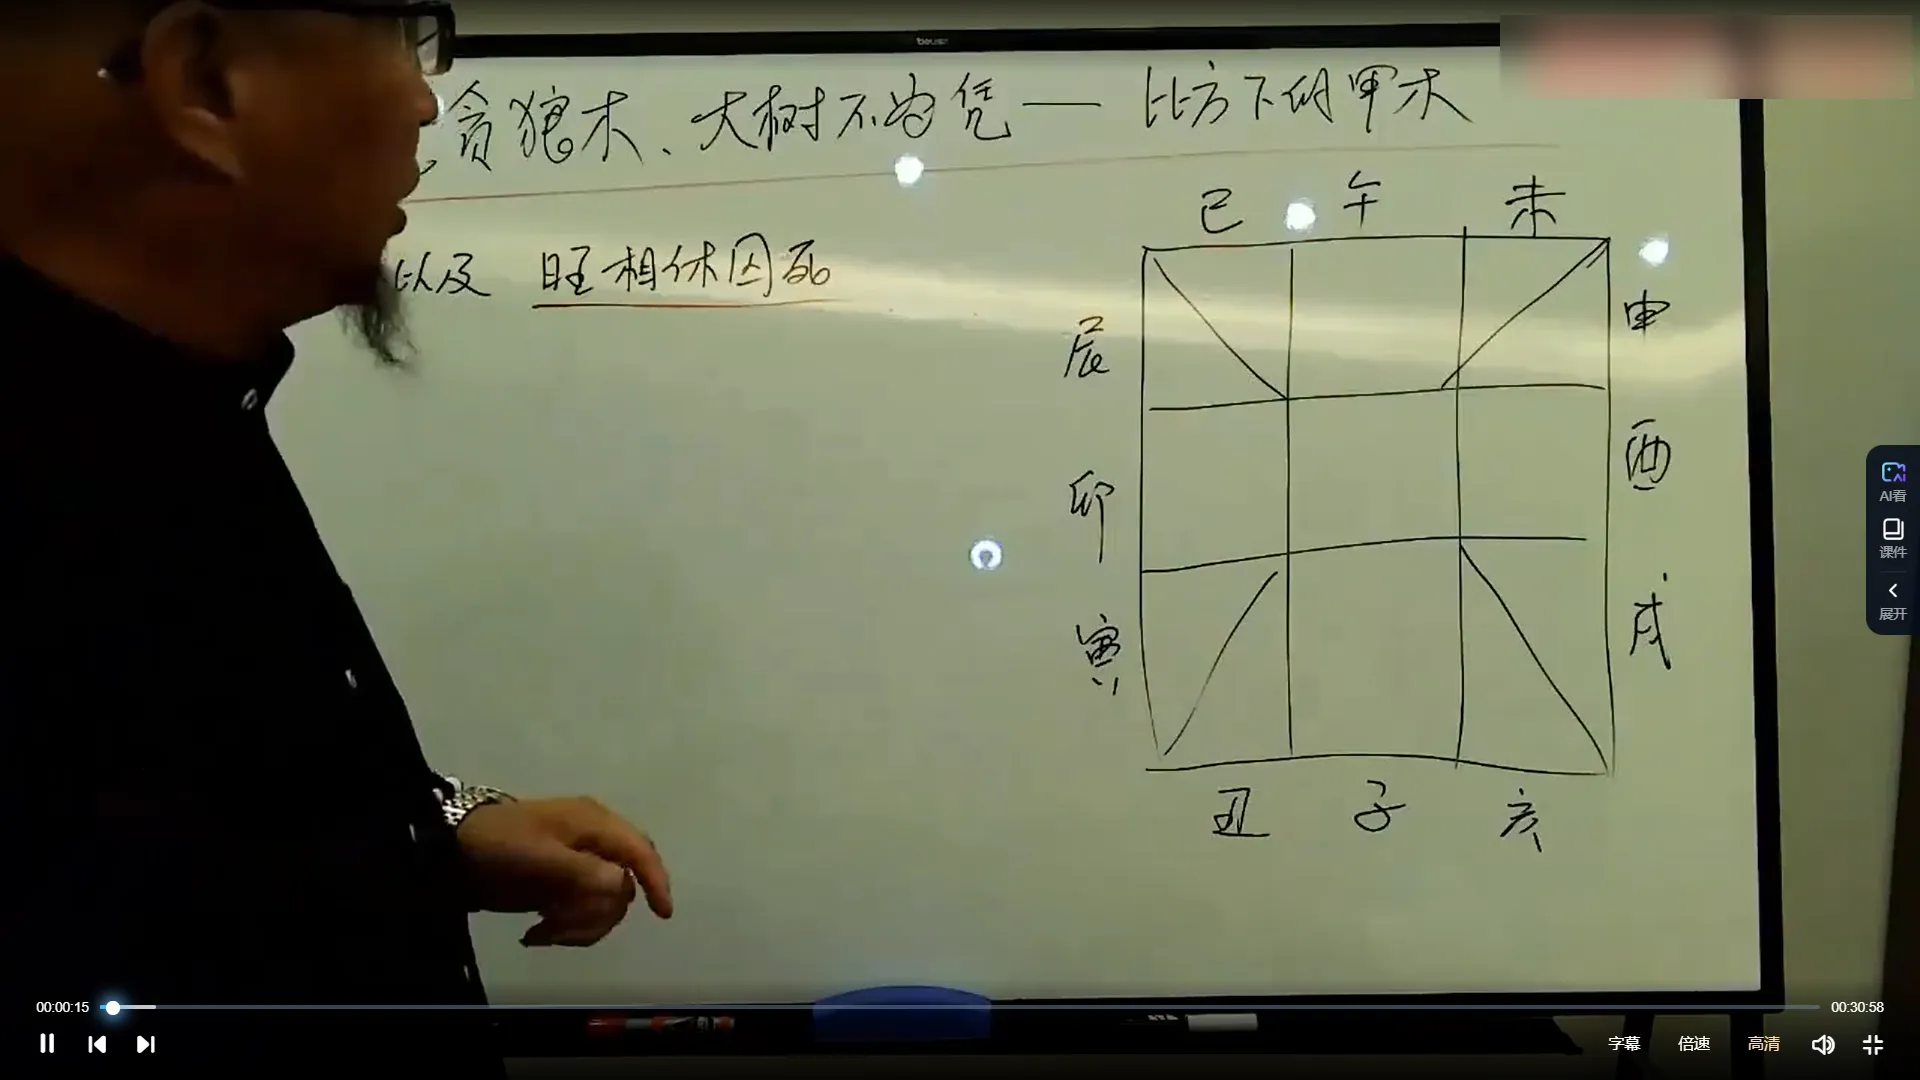 贪狼木、大树不为凭——比方下的甲木
以及 旺相休囚死
巳 午 未
辰 申
卯 酉
寅 戌
丑 子 亥
AI看
课件
展开
00:00:15
00:30:58
字幕 倍速 高清